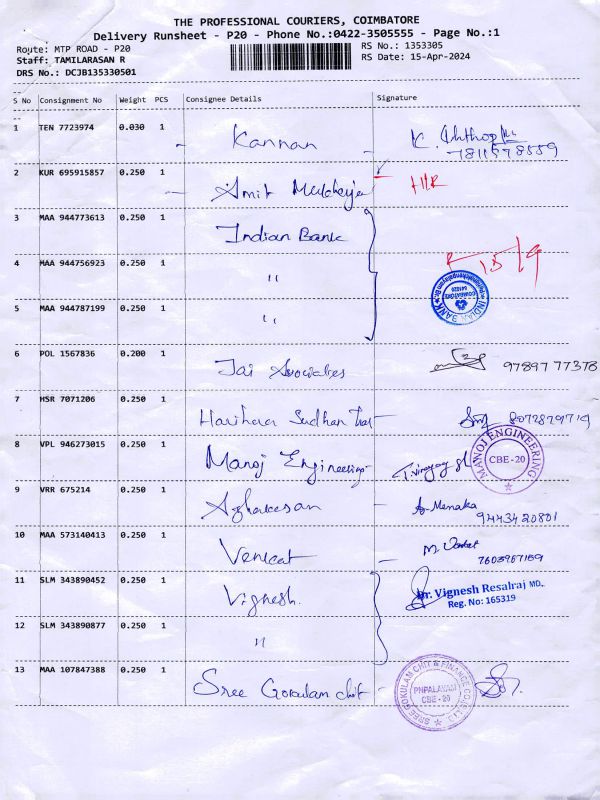 THE PROFESSIONAL COURIERS, COIMBATORE
Delivery Runsheet - P20 - Phone No.:0422-3505555 - Page No.:1
Route: MTP ROAD - P20
RS No.: 1353305
Staff: TAMILARASAN R
RS Date: 15-Apr-2024
DRS No.: DCJB135330501
S No Consignment No Weight PCS Consignee Details Signature
1 TEN 7723974 0.030 1 Kannan K.
2 KUR 695915857 0.250 1 Amit Mukherjee
3 MAA 944773613 0.250 1 Indian Bank
4 MAA 944756923 0.250 1 " 15/9
INDIAN BANK
COIMBATORE
5 MAA 944787199 0.250 1 "
6 POL 1567836 0.200 1 Jai Associates 97897 77378
7 HSR 7071206 0.250 1 Harihara Sudhan 8072879719
8 VPL 946273015 0.250 1 Manoj Engineering
MANOJ ENGINEERING
CBE-20
9 VRR 675214 0.250 1 Azhakesan A. Menaka
9443420801
10 MAA 573140413 0.250 1 Venkat M. Venkat
7603967169
11 SLM 343890452 0.250 1 Vignesh.
Dr. Vignesh Resalraj MD.,
Reg. No: 165319
12 SLM 343890877 0.250 1 "
13 MAA 107847388 0.250 1 Sree Gokulam chit
SREE GOKULAM CHIT & FINANCE CO.(P) LTD
PNPALAYAM
CBE - 20